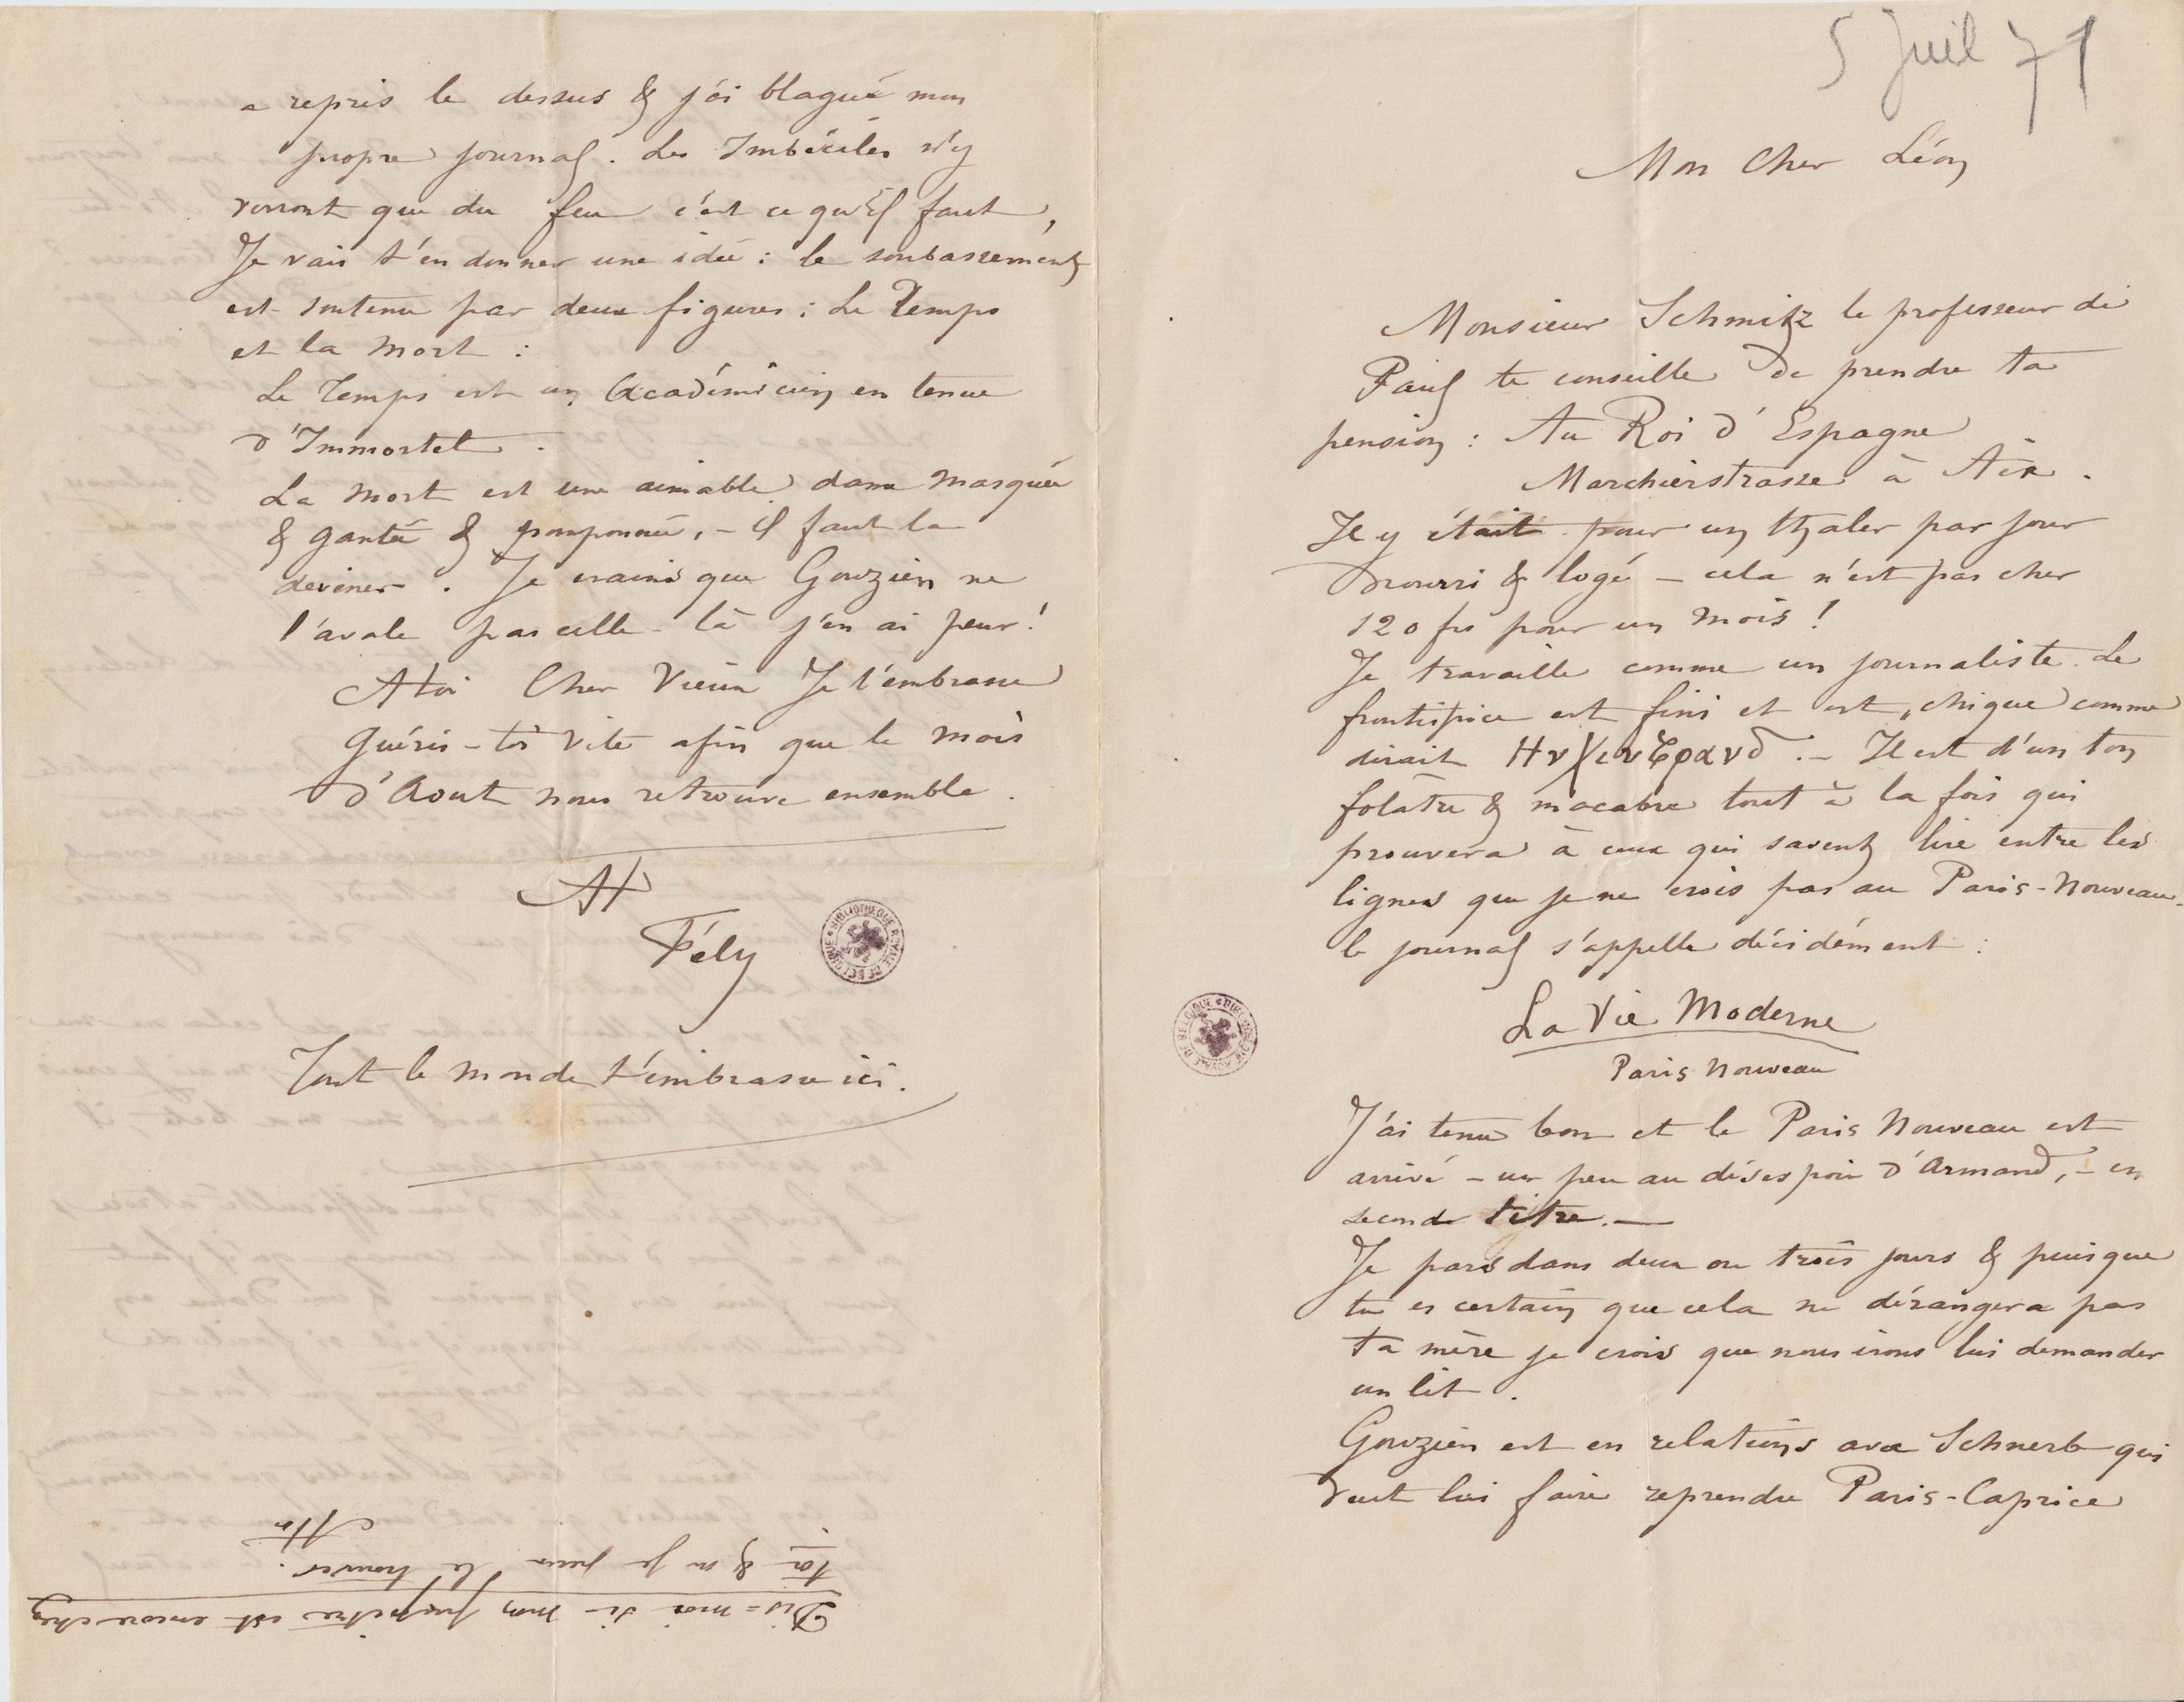 5 Juil 71
Mon Cher Léon
Monsieur Schmitz le professeur de
Paul te conseille de prendre ta
pension : Au Roi d'Espagne
Marchierstrasse à Aix.
Il y était pour un thaler par jour
nourri & logé – cela n'est pas cher
120 frs pour un mois !
Je travaille comme un journaliste. Le
frontispice est fini et est „chique comme
dirait ΗνΧενϐρανδ. – Il est d'un ton
folâtre & macabre tout à la fois qui
prouvera à ceux qui savent lire entre les
lignes que je ne crois pas au Paris-Nouveau.
le journal s'appelle décidément :
La Vie Moderne
Paris Nouveau
J'ai tenu bon et le Paris Nouveau est
arrivé – un peu au désespoir d'Armand, – en
second titre. —
Je pars dans deux ou trois jours & puisque
tu es certain que cela ne dérangera pas
ta mère je crois que nous irons lui demander
un lit.
Gouzien est en relations avec Schnerb qui
veut lui faire reprendre Paris-Caprice
a repris le dessus & j'ai blagué mon
propre journal. Les Imbéciles n'y
verront que du feu c'est ce qu'il faut,
Je vais t'en donner une idée : le soubassement
est soutenu par deux figures : Le Temps
et la Mort :
Le Temps est un Académicien en tenue
d'Immortel.
La Mort est une aimable dame masquée
& gantée & pomponnée, – il faut la
deviner. Je crains que Gouzien ne
l'avale pas celle-là j'en ai peur !
A toi Cher Vieux Je t'embrasse
Guéris-toi vite afin que le mois
d'Aout nous retrouve ensemble.
At
Fély
Tout le monde t'embrasse ici.
Dis-moi si mon pupitre est encore chez
toi & si je puis le trouver.
At